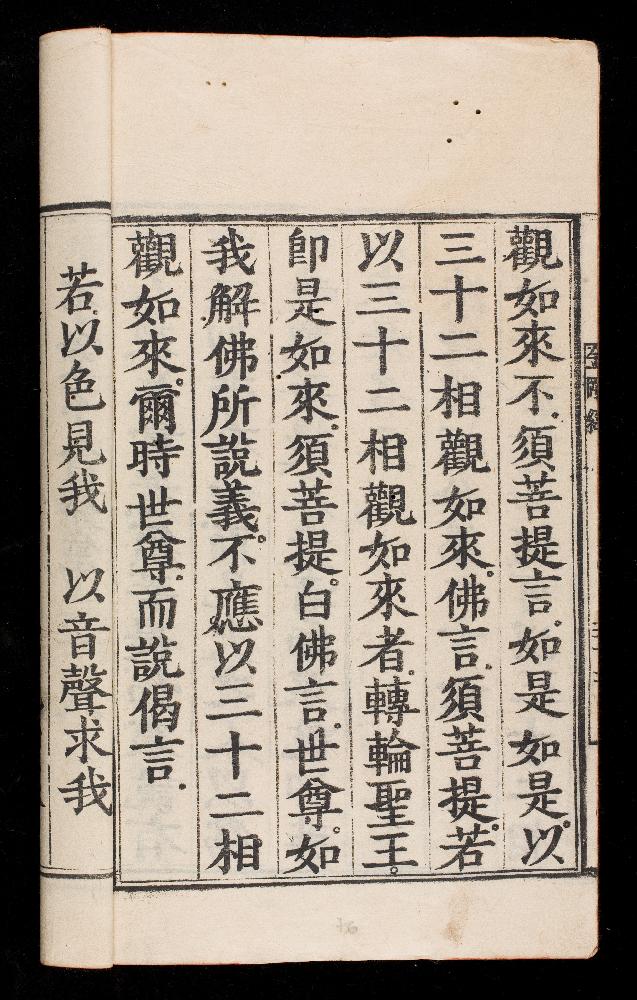 觀如來不須菩提言如是如是以
三十二相觀如來佛言須菩提若
以三十二相觀如來者轉輪聖王
卽是如來須菩提白佛言世尊如
我解佛所說義不應以三十二相
觀如來爾時世尊而說偈言
若以色見我　以音聲求我